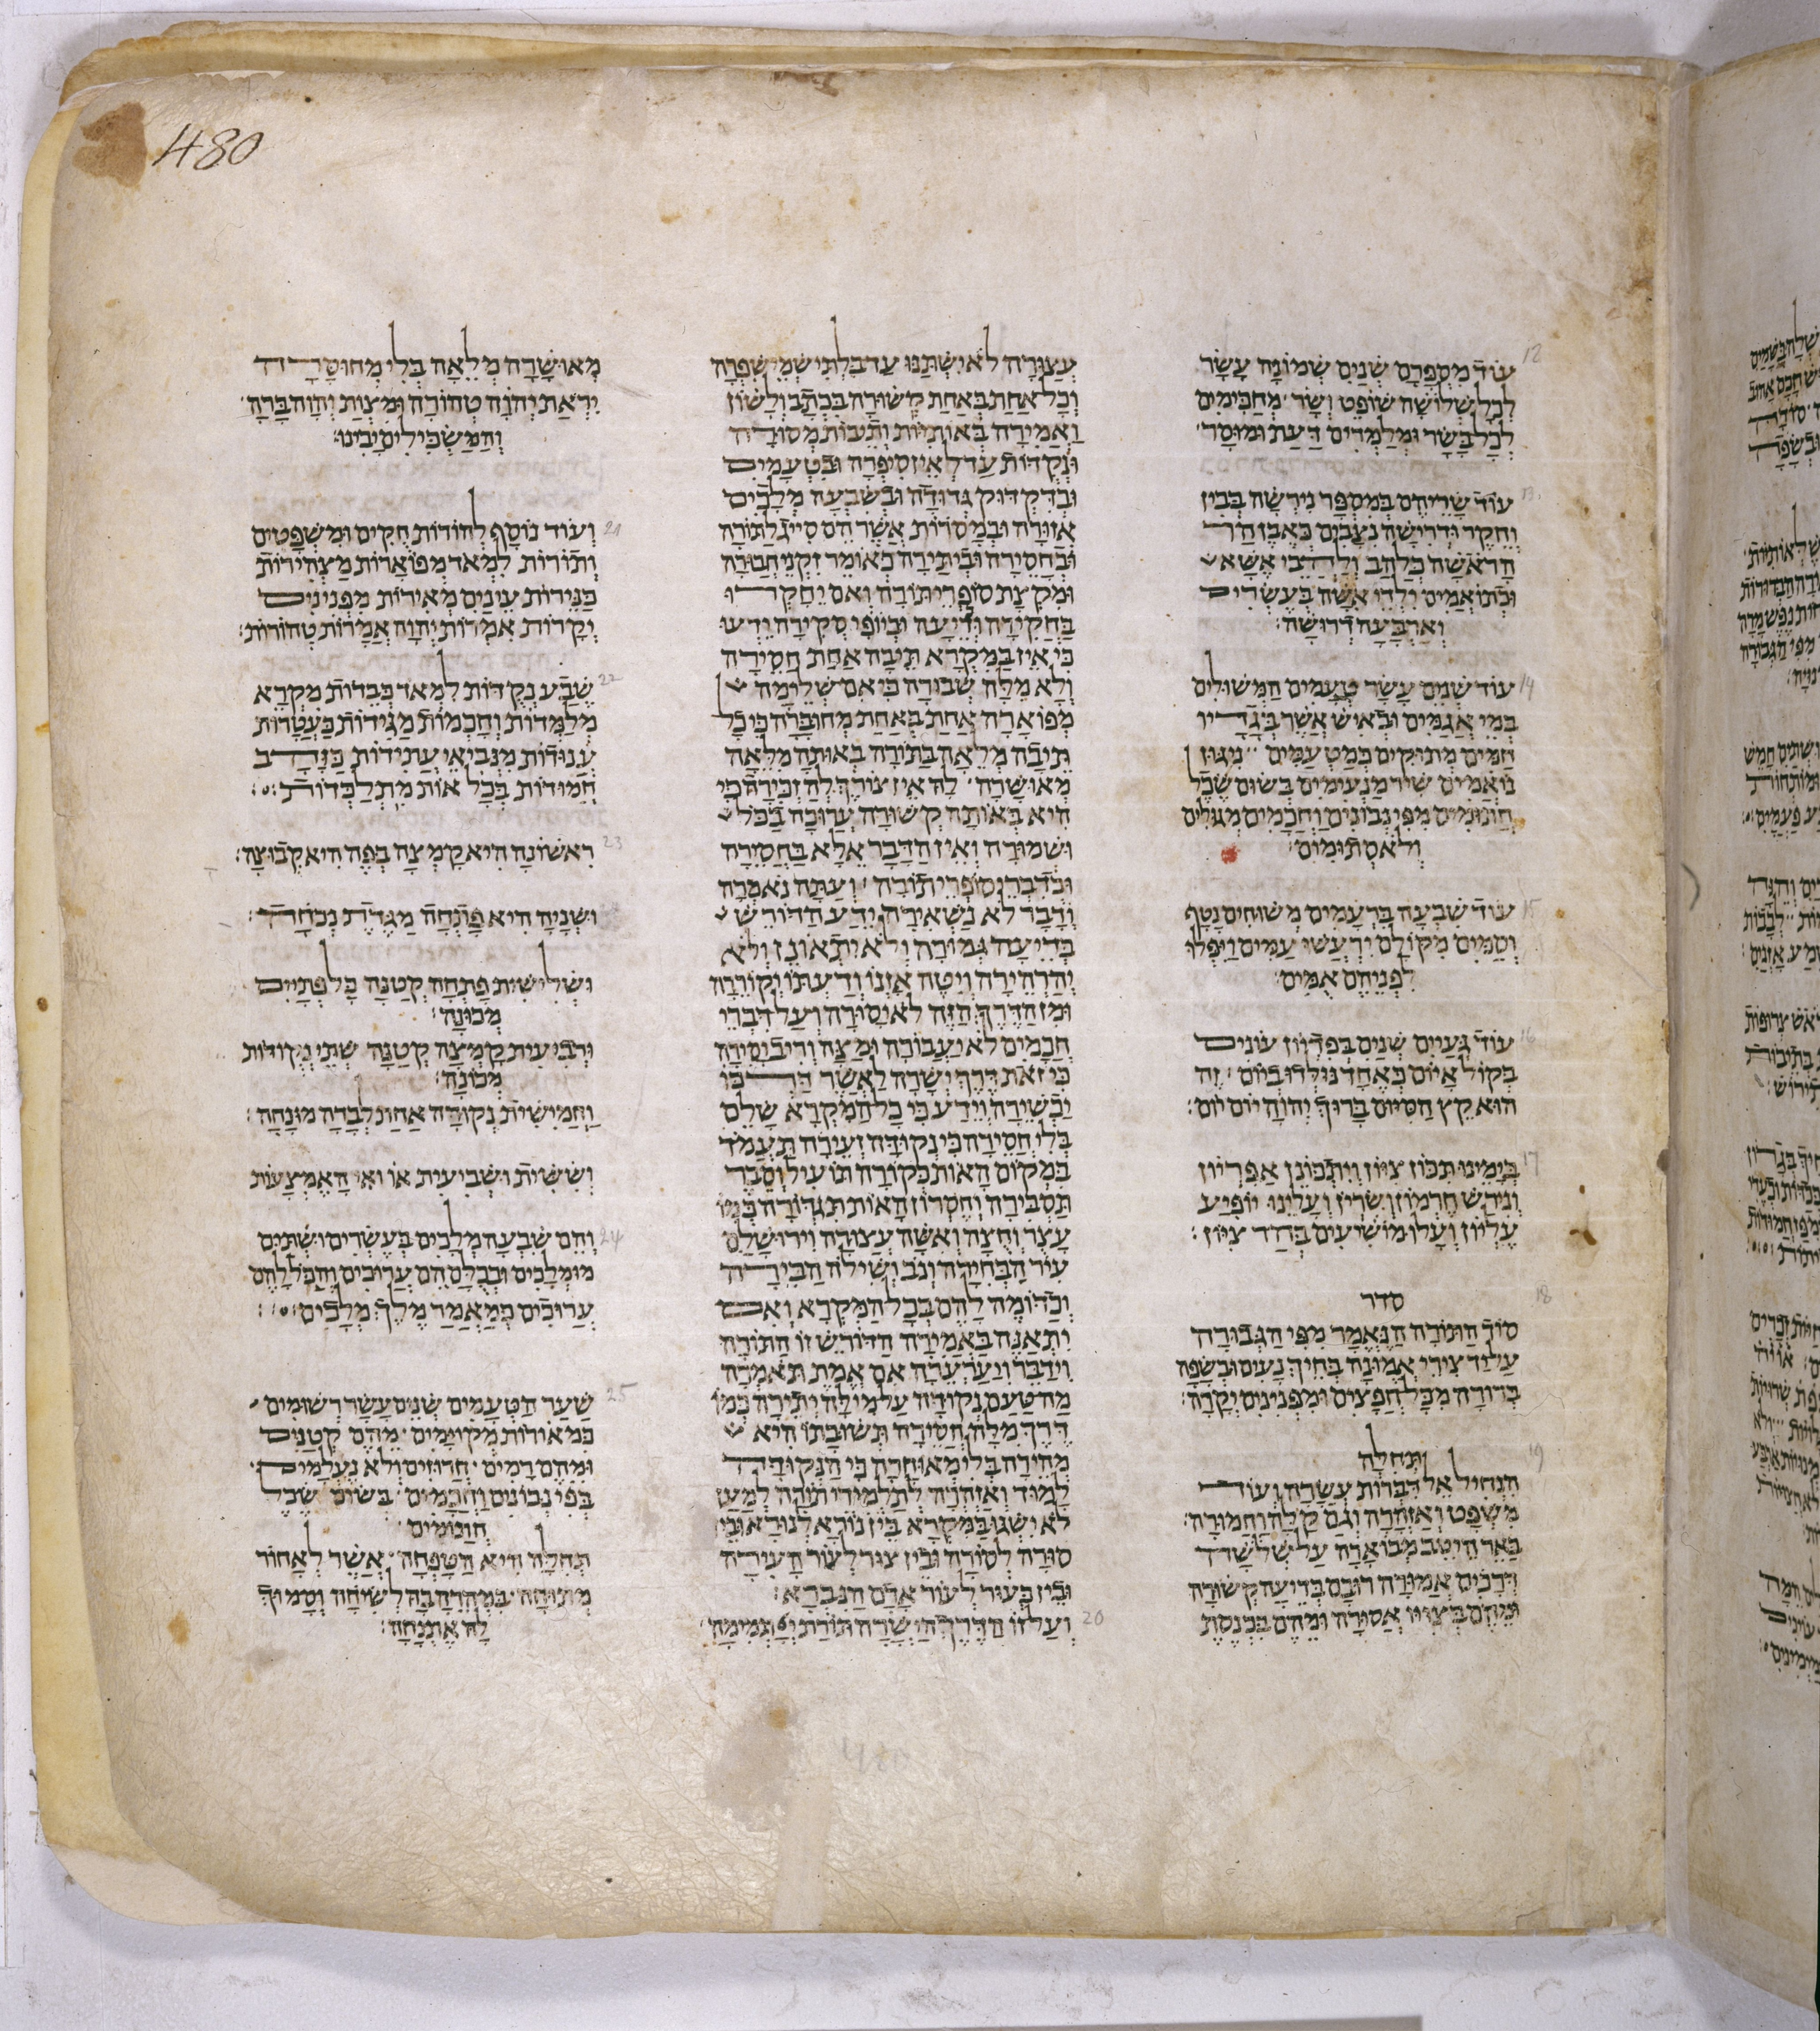 480
12
עוד מספרם שנים שמונה עשר
לכל שלושה שופט ושר מחכימים
לכל בשר ומלמדים דעת ומוסר
13
עוד שריהם במספר נירשה בבין
וחקר ודרישה נצבים כאבן חד
הראשה כלהב ולהבי אשא
ובתואמים ילדי אשה בעשרים
וארבעה דרושה׃
14
עוד שנים עשר טעמים המשולים
במי אגמים ובאיש אשר בגדיו
חמים מתוקים כמטעמים מגון
נואמים שיר מנעימים בשום שכל
חתומים מפי נבונים וחכמים מגולים
ולא סתומים׃
15
עוד שבעה ברעמים משוחים נטף
וסמים מקולם ירעשו עמים ויפלו
לפניהם אמים׃
16
עוד געיים שנים בפדיון עונים
בקול איום כאחד נולדו ביום זה
הוא קץ הסיום ברוך יהוה יום יום׃
17
בימינו תכון ציון ויתכונן אפריון
וניהש חרמון ושריון ועלינו יופיע
עליון ועלו מושיעים בהר ציון׃
18
סדר
סוד התורה הנאמר מפי הגבורה
על יד צירי אמונה בחיך נעים ובשפה
ברורה מכל חפצים ומפנינים יקרה׃
19
תחלה
הנחיל אל דברות עשרה ועוד
משפט ואזהרה וגם קלה וחמורה׃
באר היטב מבוארה על שלש דר
דרכים אמורה רובם בדיעה קשורה
ומהם בציוו אסורה ומהם בכנסת
עצורה לא ישתנו עד בלתי שמי שפרה
וכל אחת באחת קשורה בכתב ולשון
ואמירה באותיות ותיבות מסורה
ונקדות עד לאין סיפרה ובטעמים
ובדקדוק גדודה ובשבעה מלכים
אזורה ובמסרות אשר הם סייג לתורה
ובחסירה וביתירה כאומר זקני חבורה
ומקצת סופרי תורה ואם יחקרו
בחקירה ודיעה וביופי סקירה וידעו
כי אין במקרא תיבה אחת חסירה
ולא מלה שבורה כי אם שלימה
מפוארה אחת באחת מחוברה כי כל
תיבה מלאה בתורה באותה מלאה
מאושרה לה אין צורך להזכירה כי
היא באותה קשורה ערוכה בכל
ושמורה ואין הדבר אלא בחסירה
וכדברי סופרי תורה ועתה נאמרה
ודבר לא נשאירה ידע הדורש
בדיעה גמורה ולא יתאונן ולא
יהרהירה ויטה אזנו ודעתו וקורבה
ומן הדרך הזה לא יסורה ועל דברי
חכמים לא יעבורה ומצה וריב יסירה
כי זאת דרך ישרה לאשר בה כי
יכשירה וידע כי כל המקרא שלם
בלי חסירה כי נקודה זעירה תעמד
במקום האות כקורה תועיל וסבר
תסבירה וחסרון האות תגדורה כמו
עצר וחצה ואשה עצורה וירושלם
עיר הבחירה ונב ושילה הבירה
וכדומה להם בכל המקרא ואם
יתאנה באמירה הדורש זו התורה
וידבר ויערערה אם אמת תאמרה
מה טעם נקודה על מילה יתירה כמו
דרך מלה חסירה תשובתו היא
מהירה בלי מאוחרה כי הנקוד יקד
למוד ואזהרה לתלמידי תוכה למען
לא ישגו במקרא בין נורא לנורא ובין
סורה לסורה ובין צור לעור העירה
ובין בעור לעור אדם הנברא׃
20
ועל זו הדרך הישרה תורת יי תמימה
מאושרה מלאה בלי מחוסרה
יראת יהוה טהורה ומצות יהוה ברה
והמשכילים יבינו׃
21
ועוד נוסף להורות חקים ומשפטים
ותורות למאד מפוארות מצהירות
כנירות עינים מאירות מפנינים
יקרות אמרות יהוה אמרות טהורות׃
22
שבע נקדות למאד כבדות מקרא
מלמדות וחכמות מגידות כעטרות
ענודות מנביאי עתידות כנדב
חמודות בכל אות מתלכדות׃
23
ראשונה היא קמצה בפה היא קבוצה׃
ושניה היא פתחה מגדרת נכחרת׃
ושלישית פתחה קטנה כל פתיים
מכונה׃
ורביעית קמצה קטנה שתי נקודות
מכונה׃
וחמישית נקודה אחת לבדה מונחה׃
וששית ושביעית או ואי האמצעות
24
והם שבעה מלכים בעשרים ושתים
מומלכים ובכלם הם ערוכים והכל להם
ערוכים כמאמר מלך מלכים׃
25
שער הטעמים שנים עשר רשומים
כמאורות מקוימים מהם קטנים
ומהם רמים חרוזים ולא נעלמים
בפי נבונים וחכמים בשום שכל
חתומים
תחלה היא הטפחה אשר לאחור
מתוחה במהרחבה לשיחה וסמוך
לה אתנחה׃